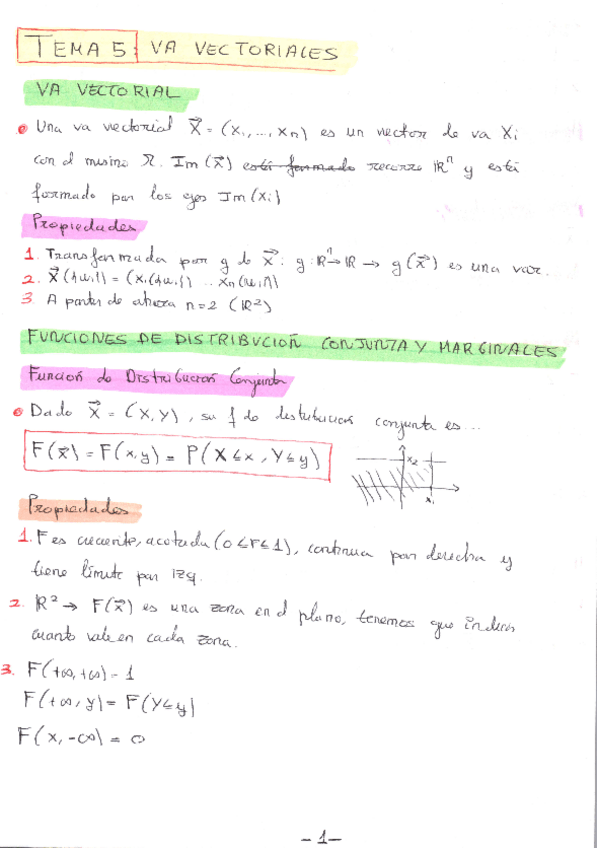 TEMA 5: VA VECTORIALES
VA VECTORIAL
Una va vectorial X⃗ = (X₁, ..., Xn) es un vector de va Xi
con el mismo Ω. Im(X⃗) está formado recorre ℝⁿ y está
formado por los ejes Im(Xi)
Propiedades
1. Transformada por g de X⃗: g: ℝⁿ→ℝ → g(X⃗) es una var...
2. X⃗({ωi}) = (X₁({ωi}) ... Xn({ωi}))
3. A partir de ahora n=2 (ℝ²)
FUNCIONES DE DISTRIBUCIÓN CONJUNTA Y MARGINALES
Función de Distribución Conjunta
Dado X⃗ = (X, Y), su f de distribución conjunta es...
F(x⃗) = F(x,y) = P(X≤x, Y≤y)
x₂
x₁
Propiedades
1. F es creciente, acotada (0≤F≤1), continua por derecha y
tiene límite por izq.
2. ℝ² → F(x⃗) es una zona en el plano, tenemos que indicar
cuanto vale en cada zona.
3. F(+∞,+∞) = 1
F(+∞, y) = F(Y≤y)
F(x, -∞) = 0
-1-